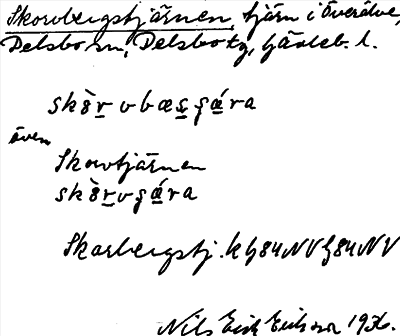 Skarvbergstjärnen, tjärn i Överälve,
Delsbo sn, Delsbo tg, Gävleb. l.
skὰr̲vbæs̲ʂá̲ra
även
Skarvtjärnen
skὰr̲vʂá̲ra
Skarbergstj. k G84NV G84NV
Nils Erik Eriksson 1936.